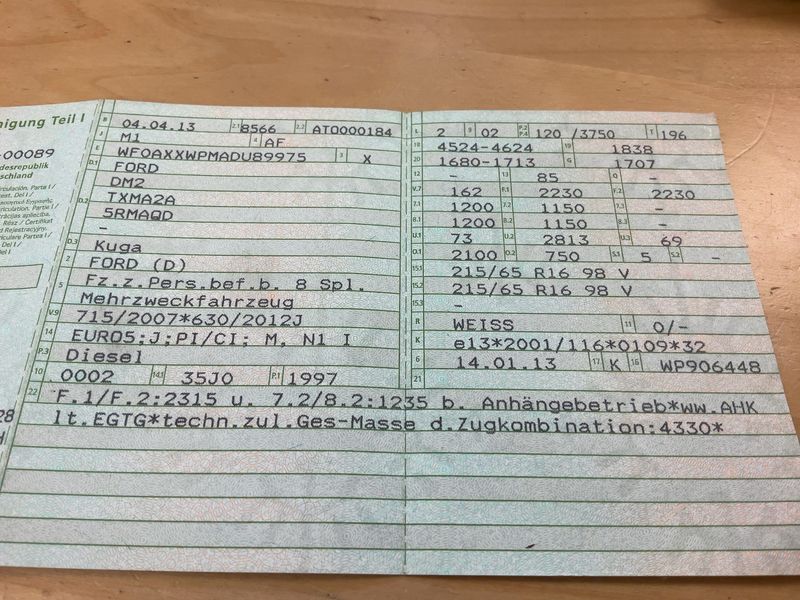 nigung Teil I
-00089
desrepublik
schland
B 04.04.13 2.1 8566 2.2 AT0000184
J M1 4 AF
E WF0AXXWPMADU89975 3 X
D.1 FORD
DM2
D.2 TXMA2A
5RMAQD
-
D.3 Kuga
2 FORD (D)
5 Fz.z.Pers.bef.b. 8 Spl.
Mehrzweckfahrzeug
V.9 715/2007*630/2012J
14 EURO5;J;PI/CI; M, N1 I
P.3 Diesel
10 0002 14.1 35J0 P.1 1997
L 2 9 02 P.2 P.4 120 /3750 T 196
18 4524-4624 19 1838
20 1680-1713 G 1707
12 - 13 85 Q -
V.7 162 F.1 2230 F.2 2230
7.1 1200 7.2 1150 7.3 -
8.1 1200 8.2 1150 8.3 -
U.1 73 U.2 2813 U.3 69
O.1 2100 O.2 750 S.1 5 S.2 -
15.1 215/65 R16 98 V
15.2 215/65 R16 98 V
15.3 -
R WEISS 11 0/-
K e13*2001/116*0109*32
6 14.01.13 17 K 16 WP906448
21
22 F.1/F.2:2315 u. 7.2/8.2:1235 b. Anhängebetrieb*ww.AHK
lt.EGTG*techn.zul.Ges-Masse d.Zugkombination:4330*